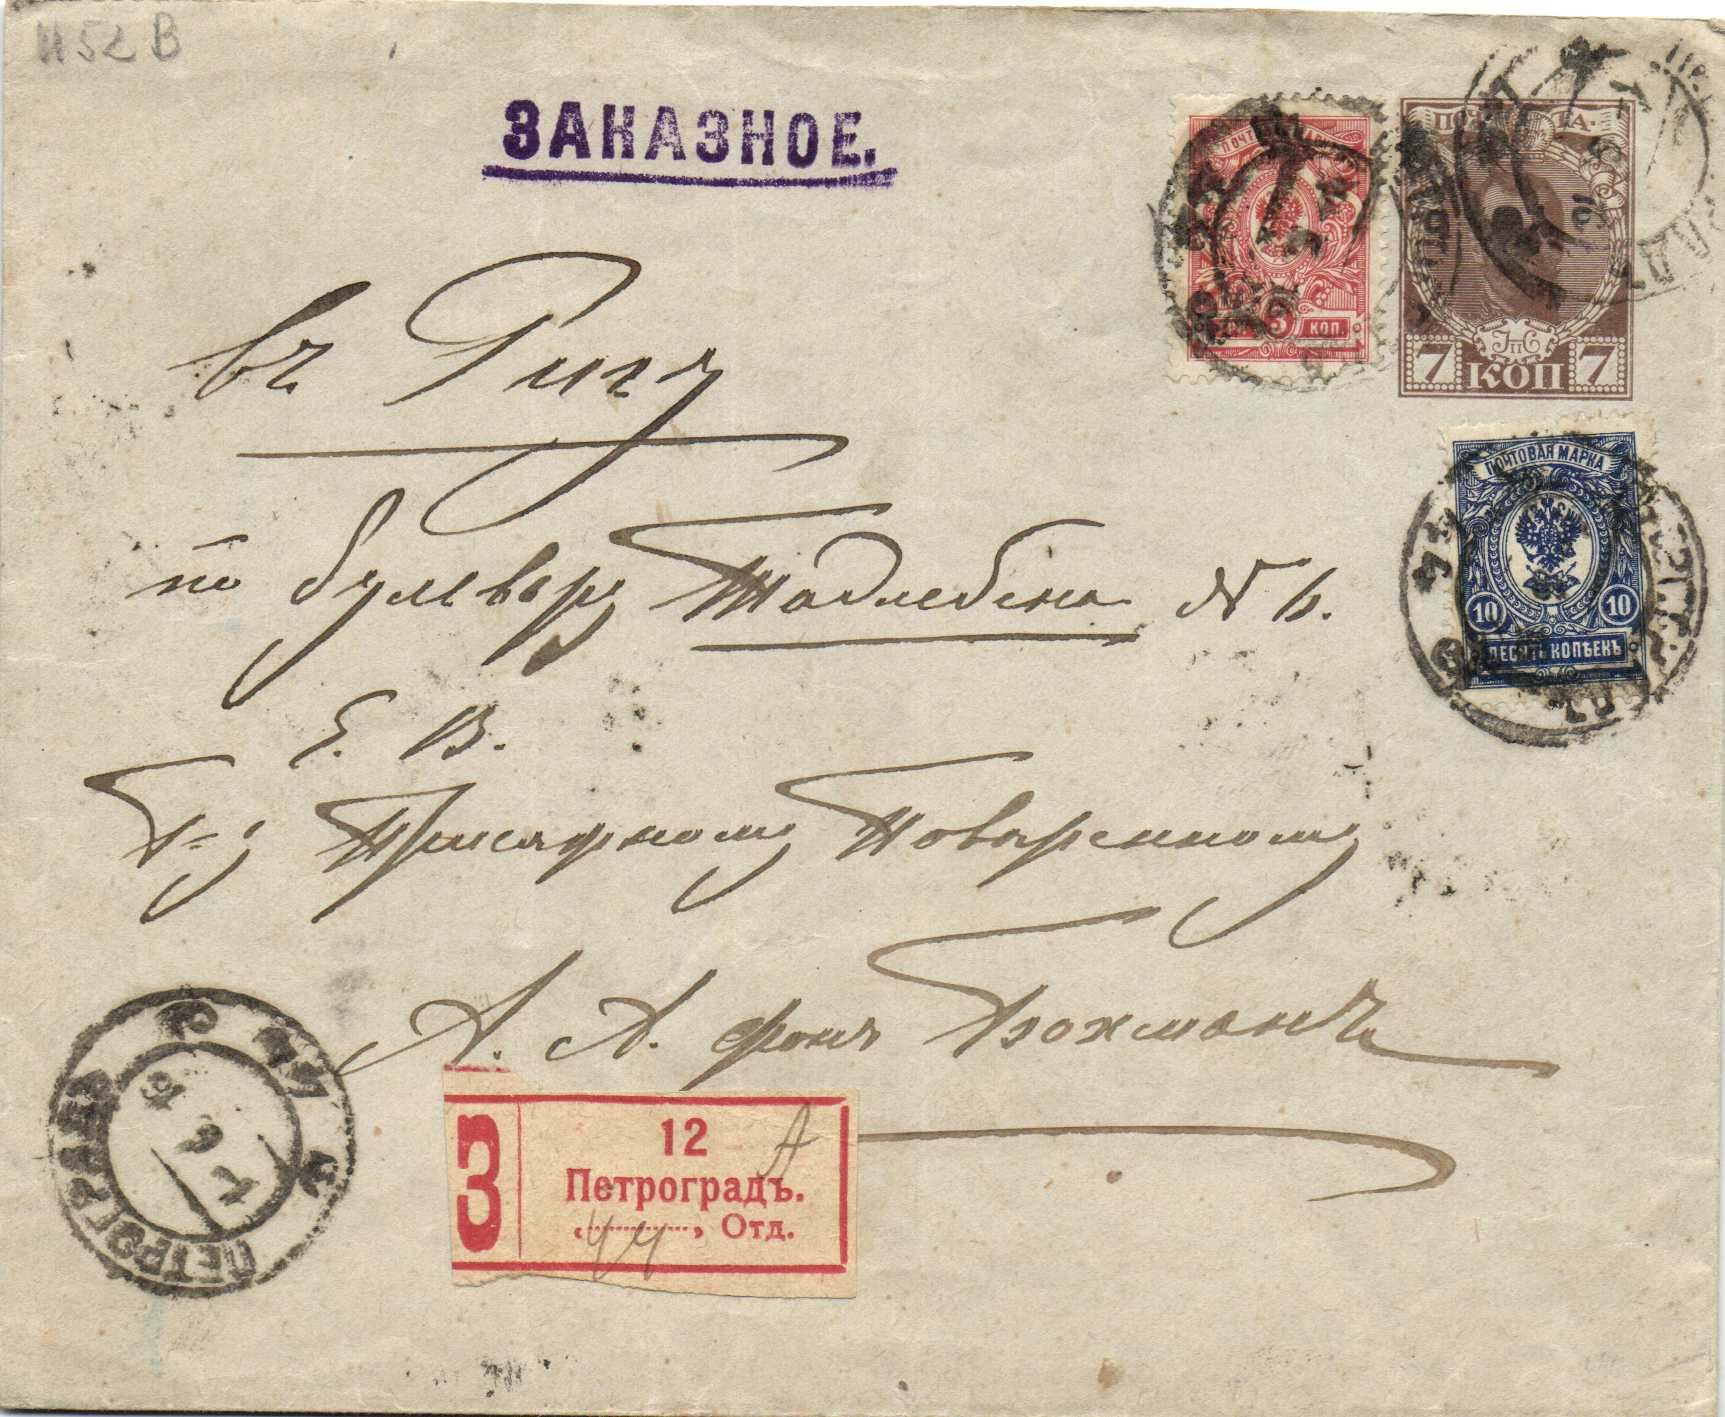 452 В
ЗАКАЗНОЕ.
ПОЧТОВАЯ МАРКА
3 КОП.
ПОЧТА.
7 КОП 7
ПОЧТОВАЯ МАРКА
10 10
ДЕСЯТЬ КОПѢЕКЪ
въ Ригу
по бульвару Тодлебена № 6.
Е. В.
Г-ну Присяжному Повѣренному
А. А. фонъ Бохманъ
ПЕТРОГРАДЪ
З
12 А
Петроградъ.
44 Отд.